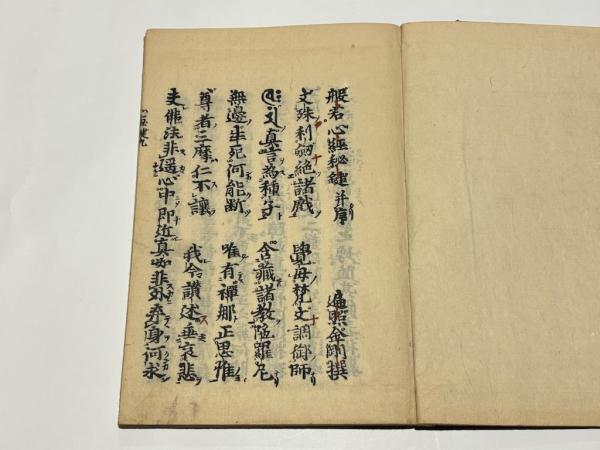 般若心經秘鍵 并序 遍照金剛撰
文殊利劔絶諸戲 覺母梵文調御師
𑖠𑖱𑖦𑖽真言為種子 含藏諸教陁羅尼
無邊生死何能断 唯有禪那正思惟
尊者三摩仁不讓 我今讃述垂哀悲
夫佛法非遥心中即近真如非外弃身何求